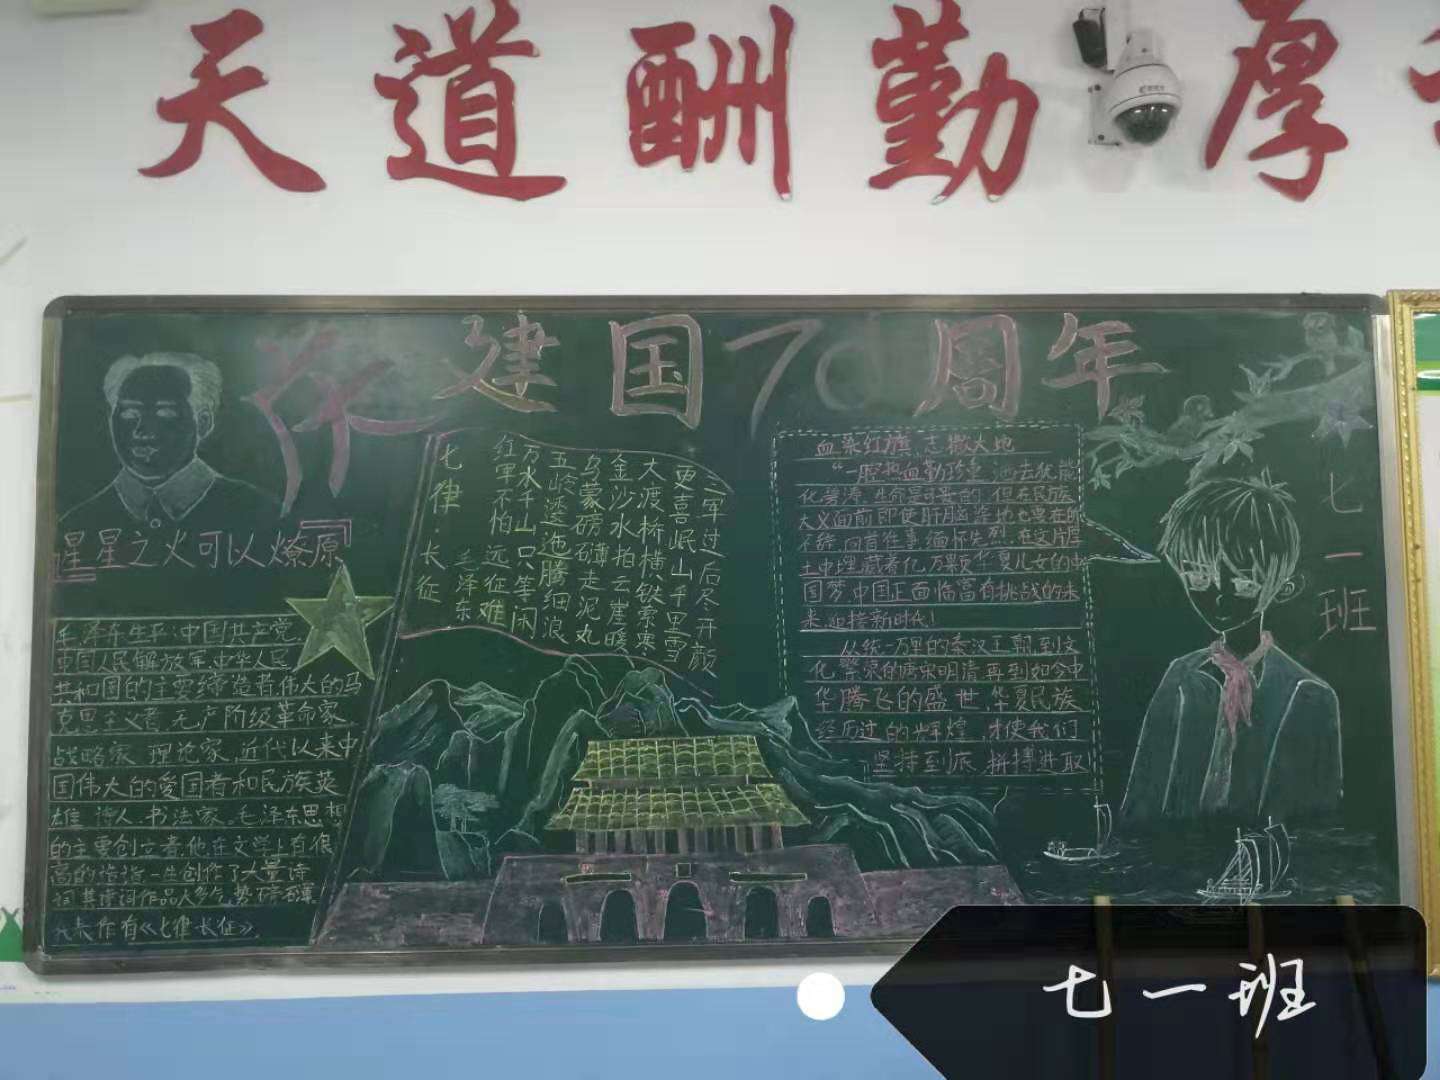 天道酬勤 厚
建国70周年
星星之火可以燎原
毛泽东生平:中国共产党,
中国人民解放军,中华人民
共和国的主要缔造者伟大的马
克思主义者,无产阶级革命家,
战略家,理论家,近代以来中
国伟大的爱国者和民族英
雄,诗人,书法家。毛泽东思想
的主要创立者,他在文学上有很
高的造诣一生创作了大量诗
词其诗词作品人多气势磅礴
代表作有《七律长征》。
七律·长征
毛泽东
红军不怕远征难
万水千山只等闲
五岭逶迤腾细浪
乌蒙磅礴走泥丸
金沙水拍云崖暖
大渡桥横铁索寒
更喜岷山千里雪
三军过后尽开颜
血染红旗,志撒大地
“一腔热血勤珍重,洒去犹能
化碧涛,生命是可贵的,但在民族
大义面前即使肝脑涂地也要在所
不辞,回首往事缅怀先烈,在这片厚
土中埋藏着亿万颗华夏儿女的中
国梦,中国正面临富有挑战的未
来,迎接新时代!
从统一万里的秦汉王朝,到文
化繁荣的唐宋明清再到如今中
华腾飞的盛世,华夏民族
经历过的辉煌,才使我们
坚持到底,拼搏进取
七一班
七一班